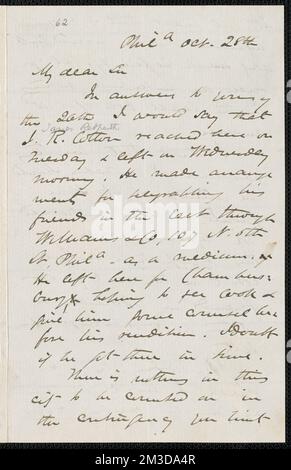 62
Phil^a Oct. 28th
My dear Sir
In answer to yours of
the 26th I would say that
James Redpath
J. R. Cotton reached here on
Tuesday & left on Wednesday
morning. He made arrange
ments for telegraphing his
friends in the East through
Williams & Co, 107 N. 5th
St. Phil^a as a medium.
He left here for Chambers-
burg, hoping to see Cook &
give him some counsel be
fore his rendition. I doubt
if he got there in time.
There is nothing in this
city to be counted on in
the contingency you hint
alamy
Image ID: 2M3DA4R
www.alamy.com